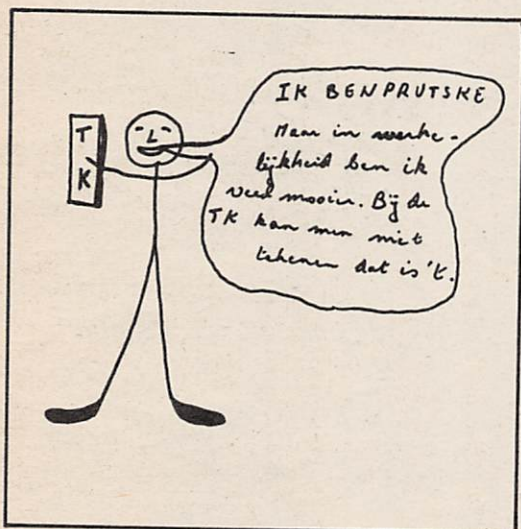 T
K
IK BEN PRUTSKE
Maar in werke-
lijkheid ben ik
veel mooier. Bij de
TK kan men niet
tekenen dat is 't.